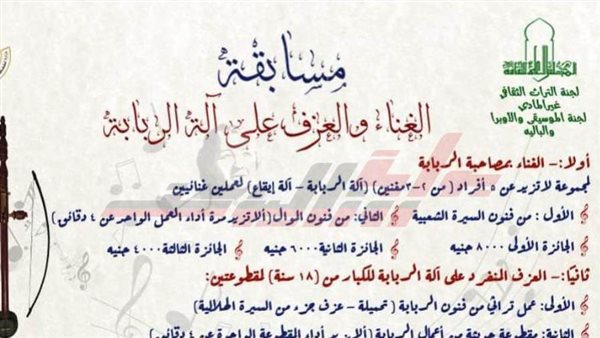 المجلس الأعلى للثقافة
لجنة التراث الثقافي
غير المادي
لجنة الموسيقى والأوبرا
والباليه
مسابقة
الغناء والعزف على آلة الربابة
أولا:- الغناء بمصاحبة الربابة
لمجموعة لا تزيد عن ٥ أفراد ( من ٢-٣ مغنين) (آلة الربابة - آلة إيقاع) لعملين غنائيين
الأول : من فنون السيرة الشعبية الثاني: من فنون الموال (ألا تزيد مدة أداء العمل الواحد عن ٤ دقائق)
الجائزة الأولى ٨٠٠٠ جنيه الجائزة الثانية ٦٠٠٠ جنيه الجائزة الثالثة ٤٠٠٠ جنيه
ثانيًا:- العزف المنفرد على آلة الربابة للكبار من (١٨ سنة) لمقطوعتين:
الأولى: عمل تراثي من فنون الربابة ( تحميلة - عزف جزء من السيرة الهلالية)
الثانية: مقطوعة حديثة من أعمال الربابة (ألا تزيد أداء المقطوعة الواحدة عن ٤ دقائق)